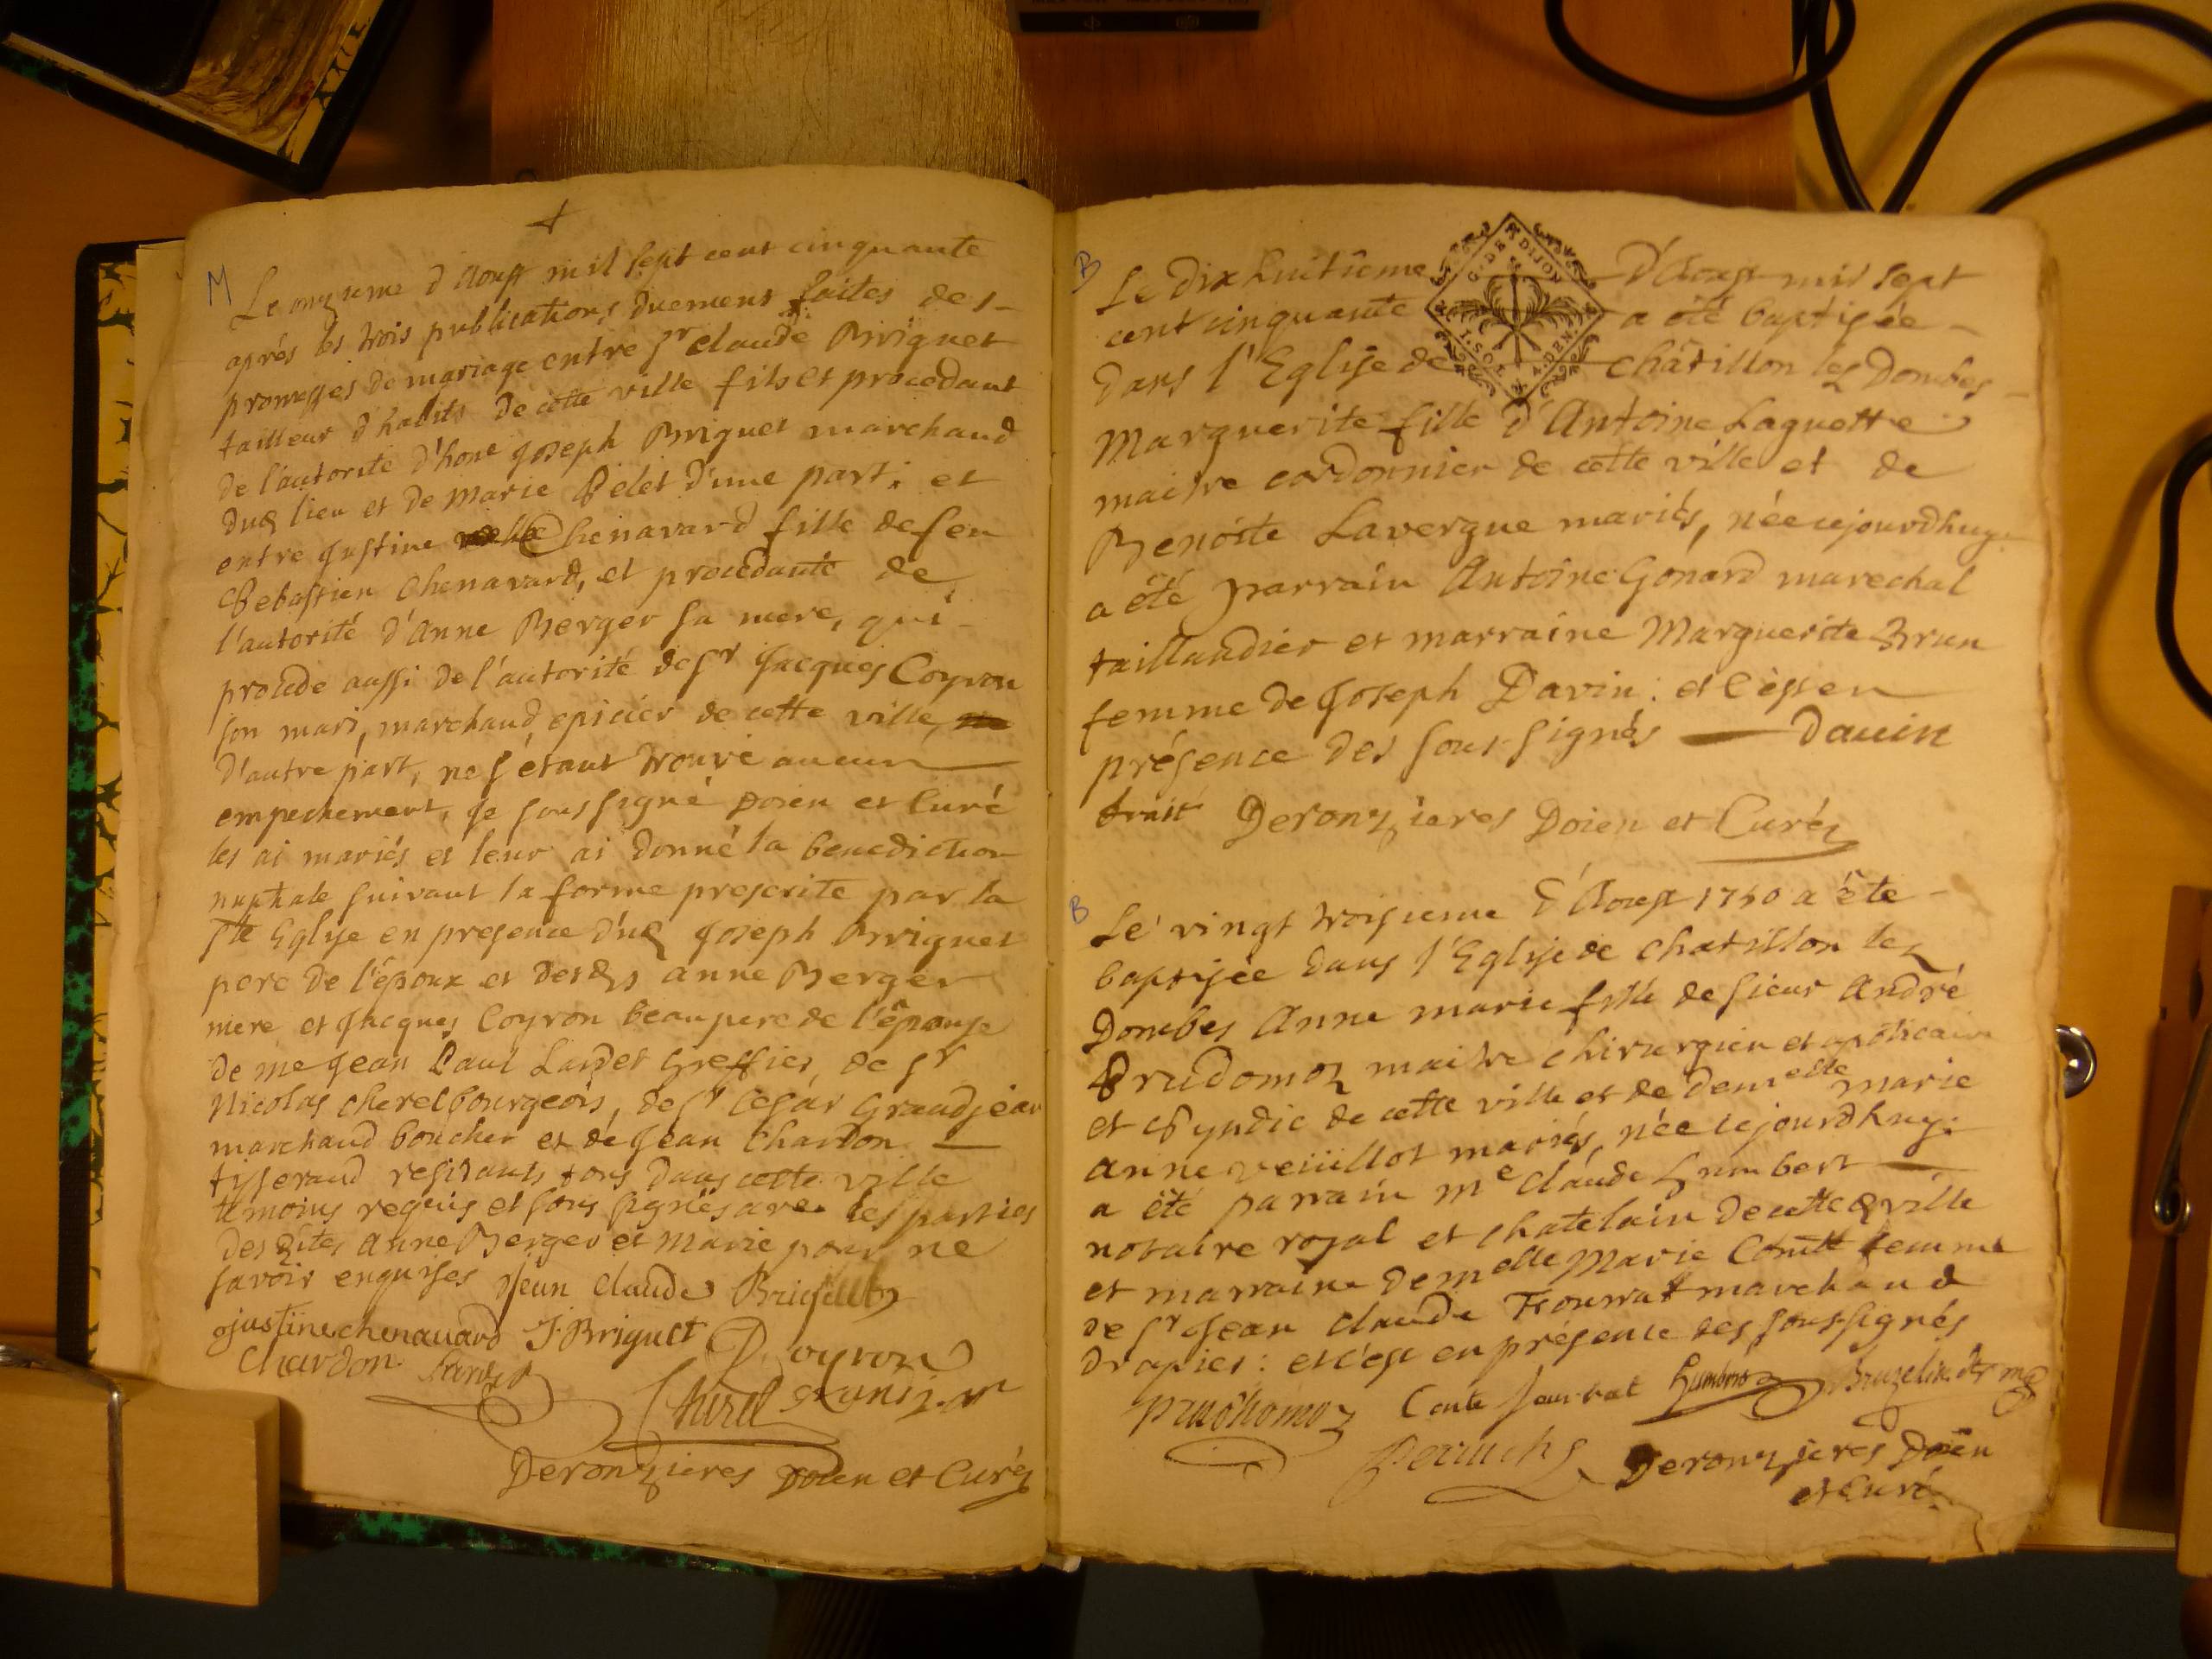 M
Le onzieme d'Aoust mil sept cent cinquante
après les trois publications duement faites des
promesses de mariage entre Sr claude Briguet
tailleur d'habits de cette ville fils et procedant
de l'autorité d'hone Joseph Briguet marchand
dud lieu et de Marie Pelet d'une part: et
entre Justine Chenavard fille de feu
Sebastien Chenavard, et procedante de
l'autorité d'Anne Berger sa mere, qui
procede aussi de l'autorité de Sr Jacques Coyron
son mari, marchand epicier de cette ville,
d'autre part, ne s'étant trouvé aucun
empechement, Je soussigné Doien et Curé
les ai mariés et leur ai donné la benediction
nuptiale suivant la forme prescrite par la
Ste Eglise en presence dud Joseph Briguet
pere de l'époux et desds anne Berger
mere et Jacques Coyron beaupere de l'épouse
de me Jean Paul Lardet Greffier, de Sr
Nicolas cherel bourgeois, de Sr Cesar Grandjean
marchand boucher et de Jean Chardon
tisserand residants tous dans cette ville
temoins requis et sous signés avec les parties
des dites Anne Berger et Marie pour ne
savoir enquises Jean Claude Briguet
justine chenavard J. Briguet Coyron
Chardon Lardet
Cherel
Deronzieres Doien et Curé
B
Le dix huitieme d'Aoust mil sept
G. DE DIJON
cent cinquante a été baptisée
dans l'Eglise de châtillon les Dombes
Marguerite fille d'Antoine Laguette
maitre cordonnier de cette ville et de
Benoîte Lavergne mariés, née cejourdhuy
a été parrain Antoine Gonard marechal
taillandier et marraine Marguerite Brun
femme de Joseph Davin: et c'est en
présence des sous signés Dauin
Deronzieres Doien et Curé
B
Le vingt troisieme d'Aoust 1750 a été
baptisée dans l'Eglise de chatillon les
Dombes Anne marie fille de sieur André
Prudomoz maitre chirurgien et apoticaire
et Syndic de cette ville et de demelle marie
anne veüillot mariés, née cejourdhuy:
a été parrain Me claude humbert
notaire royal et chatelain de cette ville
et marraine demelle Marie Comte femme
de Sr Jean claude Fourrat marchand
drapier: et c'est en présence des soussignés
prudhomoz Conte fourrat humbert
Deronzieres Doien
et Curé